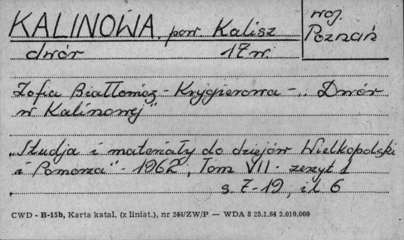 KALINOWA. pow. Kalisz
woj. Poznań
dwór 17 w.
Zofia Białłowicz - Krygierowa - „Dwór
w Kalinowej"
„Studja i materiały do dziejów Wielkopolski
i Pomorza" - 1962, Tom VII - zeszyt 1
s. 7-19, il. 6
CWD - B-15b, Karta katal. (z liniat.), nr 244/ZW/P — WDA 8 25.1.64 2.010.000